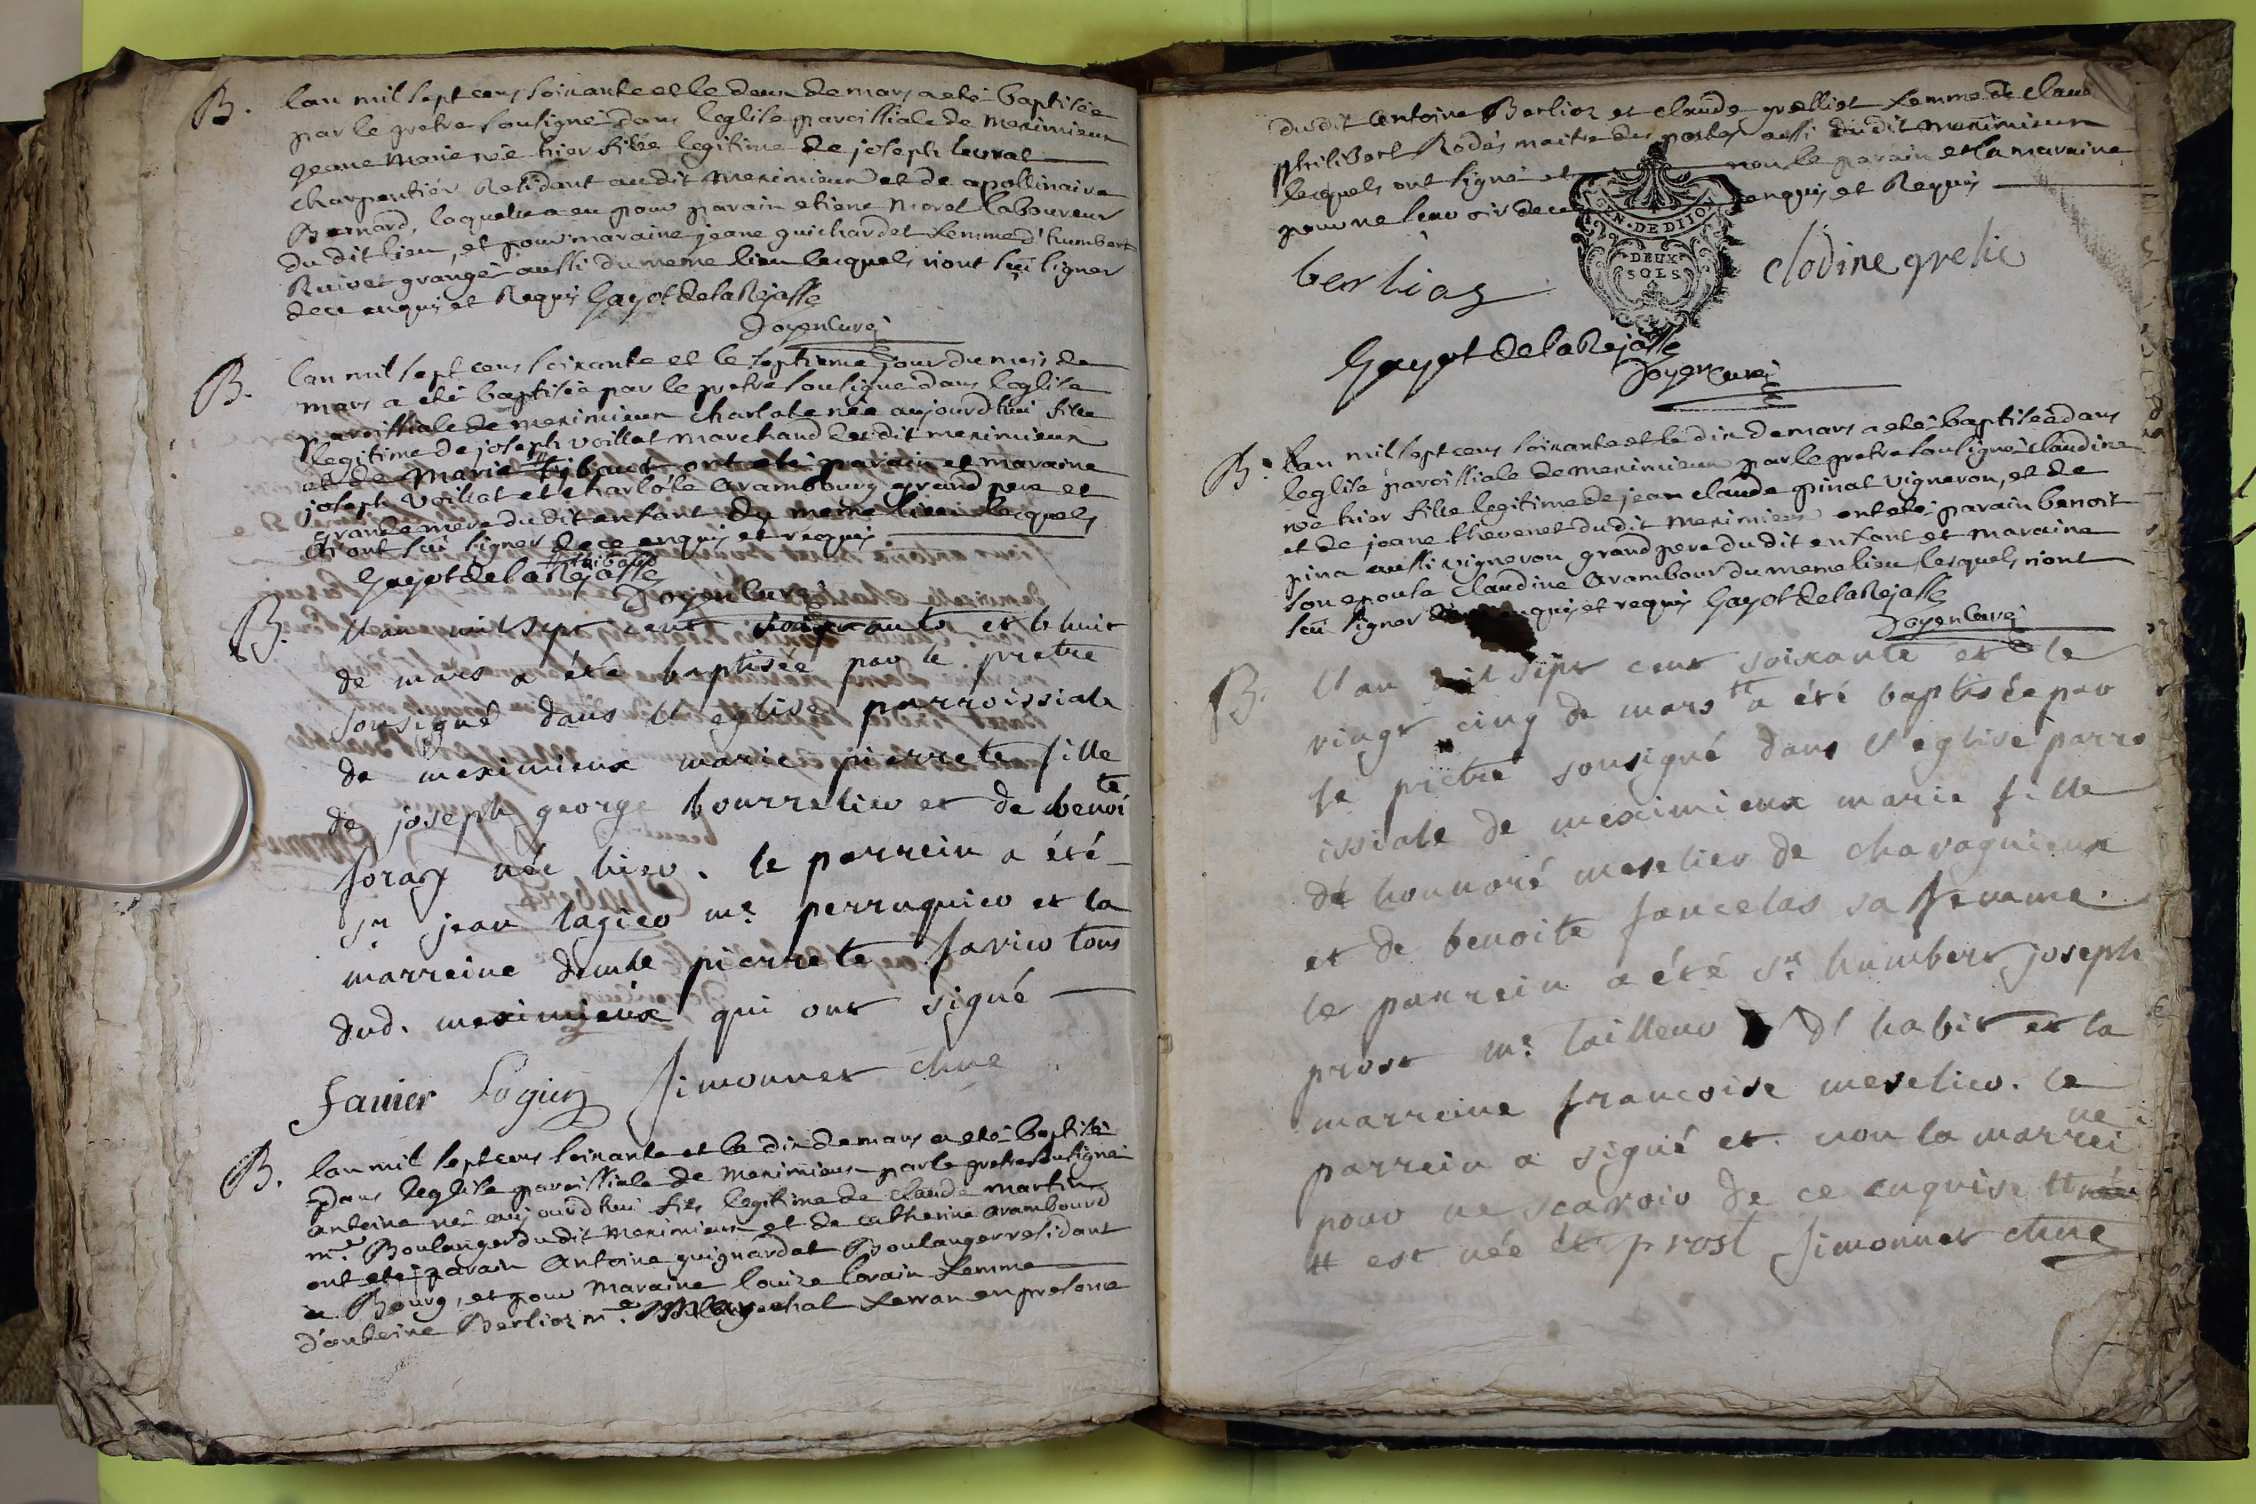 B. lan mil sept cens soixante et le deux de mars a eté baptisée
par le prêtre sousigné dans leglise paroissiale de Meximieux
jeane Marie née hier fille legitime de joseph levrat
charpentier Residant audit Meximieux et de apollinaire
Bernard, laquelle a eu pour parain etiene Morel laboureur
du dit lieu, et pour maraine jeane guichardet femme d'humbert
Ruivet granger aussi du meme lieu lesquels n'ont sçu signer
de ce enquis et Requis Gayot de la Rejasse
Doyen Curé
B. lan mil sept cens soixante et le septieme jour du mois de
mars a été baptisée par le prêtre sousigné dans leglise
paroissiale de meximieux charlote née aujourdhui fille
legitime de joseph voillat marchand dudit meximieux
et de Marie tibaud ont eté parain et maraine
joseph voillat et charlote arambourg grand pere et
grande mere du dit enfant du meme lieu lesquels
n'ont sçu signer de ce enquis et requis
Gayot de la Rejasse
Doyen Curé
B. l'an mil sept cent soixante et le huit
de mars a été baptisée par le pretre
sousigné dans l'eglise parroissiale
de meximieux marie pierrete fille
de joseph george bourrelier et de benoi
te
forax née hier. le parrein a été
sr jean lagier me perruquier et la
marreine demlle pierrete favier tous
dud. meximieux qui ont signé
favier Logier simonnet
B. lan mil sept cens soixante et le dix de mars a eté baptisé
dans leglise paroissiale de Meximieux par le pretre sousigné
antoine né aujourdhui fils legitime de claude martin
me Boulanger du dit Meximieux et de catherine arambourd
ont eté parain Antoine guignardat Boulanger residant
a Bourg, et pour Maraine louize lorain femme
d'antoine Berlioz me Marechal ferran en presence
dudit Antoine Berlioz et claude grelliet femme de claud
philibert Rodés maitre des postes aussi dudit meximieux
lesquels ont signé et non le parain et la maraine
pour ne sçavoir de ce enquis et Requis
GEN. DE DIJON
DEUX
SOLS
berlioz clodine grelie
Gayot de la Rejasse
Doyen Curé
B. lan mil sept cens soixante et le dix de mars a eté baptisée dans
leglise paroissiale de meximieux par le pretre sousigné claudine
née hier fille legitime de jean claude pinat vigneron, et de
et de jeane thevenet du dit meximieux ont eté parain benoit
pina aussi vigneron grand pere du dit enfant et maraine
son epouse claudine Arambour du meme lieu lesquels n'ont
sçu signer enquis et requis Gayot de la Rejasse
Doyen Curé
B. l'an mil sept cent soixante et le
vingt cinq de mars # a été baptisée par
le pretre sousigné dans l'eglise parro
issiale de meximieux marie fille
de honnoré meselier de chavagnieux
et de benoite fancelas sa femme.
le parrein a été sr humbert joseph
prost me tailleur d'habit et la
marreine francoise meselier. le
parrein a signé et non la marrei
ne
pour ne scavoir de ce enquise #
# est née prost simonnet